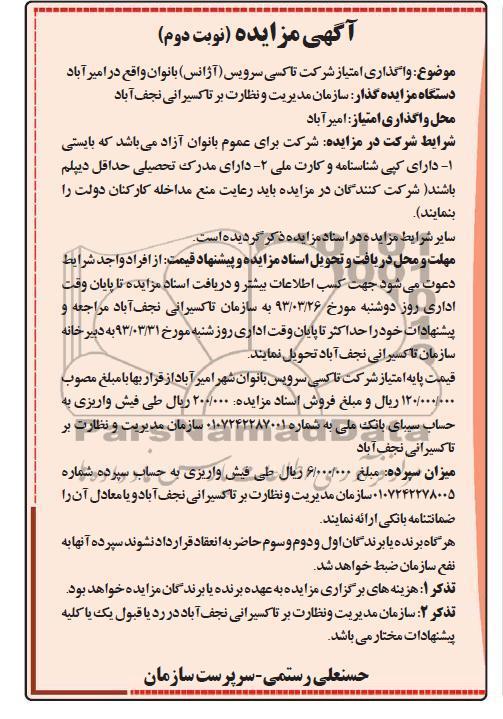 آگهی مزایده (نوبت دوم)
موضوع: واگذاری امتیاز شرکت تاکسی سرویس (آژانس) بانوان واقع در امیرآباد
دستگاه مزایده گذار: سازمان مدیریت و نظارت بر تاکسیرانی نجف‌آباد
محل واگذاری امتیاز: امیرآباد
شرایط شرکت در مزایده: شرکت برای عموم بانوان آزاد می‌باشد که بایستی
۱- دارای کپی شناسنامه و کارت ملی ۲- دارای مدرک تحصیلی حداقل دیپلم
باشند( شرکت کنندگان در مزایده باید رعایت منع مداخله کارکنان دولت را
بنمایند).
سایر شرایط مزایده در اسناد مزایده ذکر گردیده است.
مهلت و محل دریافت و تحویل اسناد مزایده و پیشنهاد قیمت: از افراد واجد شرایط
دعوت می شود جهت کسب اطلاعات بیشتر و دریافت اسناد مزایده تا پایان وقت
اداری روز دوشنبه مورخ ۹۳/۰۳/۲۶ به سازمان تاکسیرانی نجف‌آباد مراجعه و
پیشنهادات خود را حداکثر تا پایان وقت اداری روز شنبه مورخ ۹۳/۰۳/۳۱ به دبیرخانه
سازمان تاکسیرانی نجف‌آباد تحویل نمایند.
قیمت پایه امتیاز شرکت تاکسی سرویس بانوان شهر امیرآباد از قرار بها با مبلغ مصوب
۱۲۰/۰۰۰/۰۰۰ ریال و مبلغ فروش اسناد مزایده: ۲۰۰/۰۰۰ ریال طی فیش واریزی به
حساب سیبای بانک ملی به شماره ۰۱۰۷۲۴۲۲۸۷۰۰۱ سازمان مدیریت و نظارت بر
تاکسیرانی نجف‌آباد
میزان سپرده: مبلغ ۶/۰۰۰/۰۰۰ ریال طی فیش واریزی به حساب سپرده شماره
۰۱۰۷۲۴۲۲۷۸۰۰۵ سازمان مدیریت و نظارت بر تاکسیرانی نجف‌آباد و یا معادل آن را
ضمانتنامه بانکی ارائه نمایند.
هر گاه برنده یا برندگان اول و دوم و سوم حاضر به انعقاد قرارداد نشوند سپرده آنها به
نفع سازمان ضبط خواهد شد.
تذکر ۱: هزینه های برگزاری مزایده به عهده برنده یا برندگان مزایده خواهد بود.
تذکر ۲: سازمان مدیریت و نظارت بر تاکسیرانی نجف‌آباد در رد یا قبول یک یا کلیه
پیشنهادات مختار می باشد.
حسنعلی رستمی-سرپرست سازمان
ParsNamadData